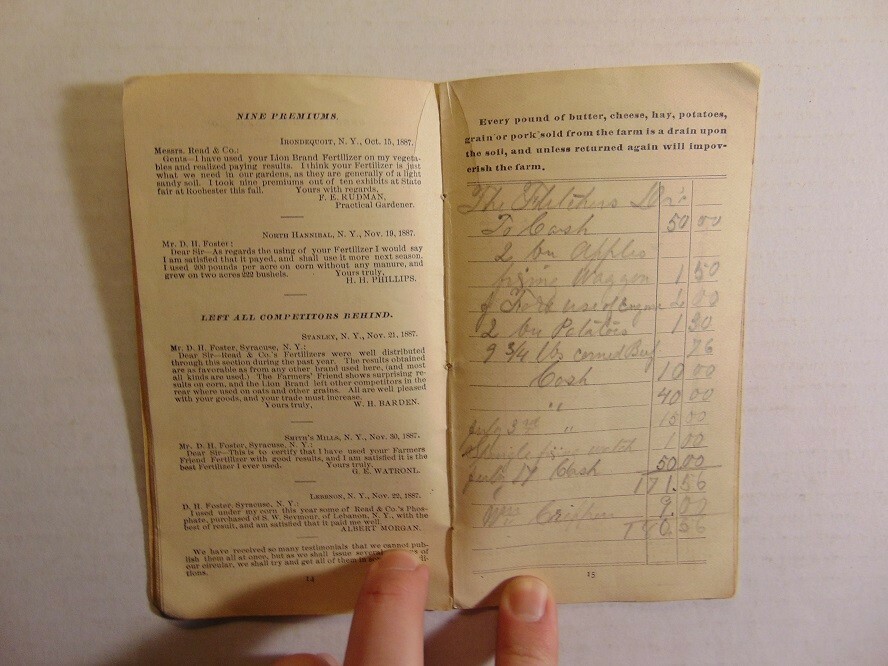 NINE PREMIUMS.
IRONDEQUOIT, N. Y., Oct. 15, 1887.
Messrs. Read & Co.:
Gents—I have used your Lion Brand Fertilizer on my vegeta-
bles and realized paying results. I think your Fertilizer is just
what we need in our gardens, as they are generally of a light
sandy soil. I took nine premiums out of ten exhibits at State
fair at Rochester this fall. Yours with regards,
F. E. RUDMAN,
Practical Gardener.
NORTH HANNIBAL, N. Y., Nov. 19, 1887.
Mr. D. H. Foster:
Dear Sir—As regards the using of your Fertilizer I would say
I am satisfied that it payed, and shall use it more next season.
I used 200 pounds per acre on corn without any manure, and
grew on two acres 222 bushels. Yours truly,
H. H. PHILLIPS.
LEFT ALL COMPETITORS BEHIND.
STANLEY, N. Y., Nov. 21, 1887.
Mr. D. H. Foster, Syracuse, N. Y.:
Dear Sir—Read & Co.'s Fertilizers were well distributed
through this section during the past year. The results obtained
are as favorable as from any other brand used here, (and most
all kinds are used.) The Farmers' Friend shows surprising re-
sults on corn, and the Lion Brand left other competitors in the
rear where used on oats and other grains. All are well pleased
with your goods, and your trade must increase.
Yours truly, W. H. BARDEN.
SMITH'S MILLS, N. Y., Nov. 30, 1887.
Mr. D. H. Foster, Syracuse, N. Y.:
Dear Sir—This is to certify that I have used your Farmers
Friend Fertilizer with good results, and I am satisfied it is the
best Fertilizer I ever used. Yours truly,
G. E. WATRONL.
LEBENON, N. Y., Nov. 22, 1887.
D. H. Foster, Syracuse, N. Y.:
I used under my corn this year some of Read & Co.'s Phos-
phate, purchased of S. W. Seymour, of Lebanon, N. Y., with the
best of result, and am satisfied that it paid me well.
ALBERT MORGAN.
We have received so many testimonials that we cannot pub-
lish them all at once, but as we shall issue several of
our circular, we shall try and get all of them in
tions.
14
Every pound of butter, cheese, hay, potatoes,
grain or pork sold from the farm is a drain upon
the soil, and unless returned again will impov-
erish the farm.
The Fletchers
To Cash 50 00
2 bu Apples
fixing Waggon 1 50
use of Engine 2 00
2 bu Potatoes 1 30
9 3/4 lbs corned Beef 76
Cash 10 00
" 40 00
July 3rd " 15 00
fixing watch 1.00
July 17 Cash 50.00
171.56
9.00
180.56
15